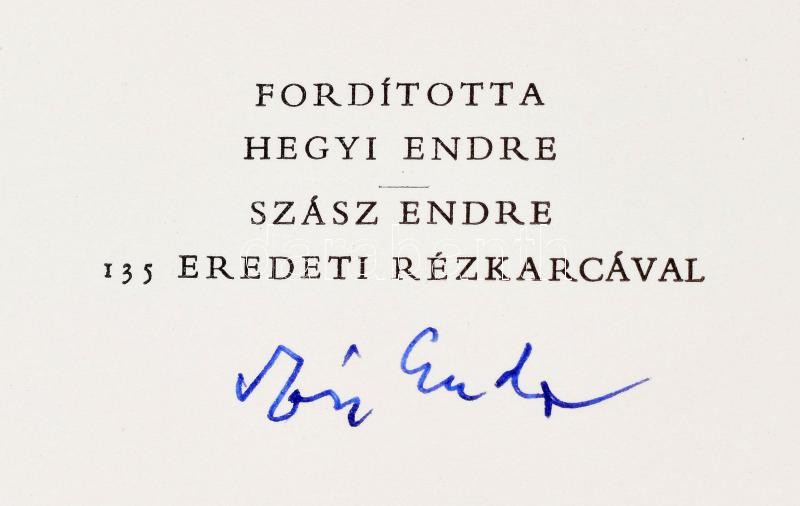 FORDÍTOTTA
HEGYI ENDRE
SZÁSZ ENDRE
135 EREDETI RÉZKARCÁVAL
Szász Endre